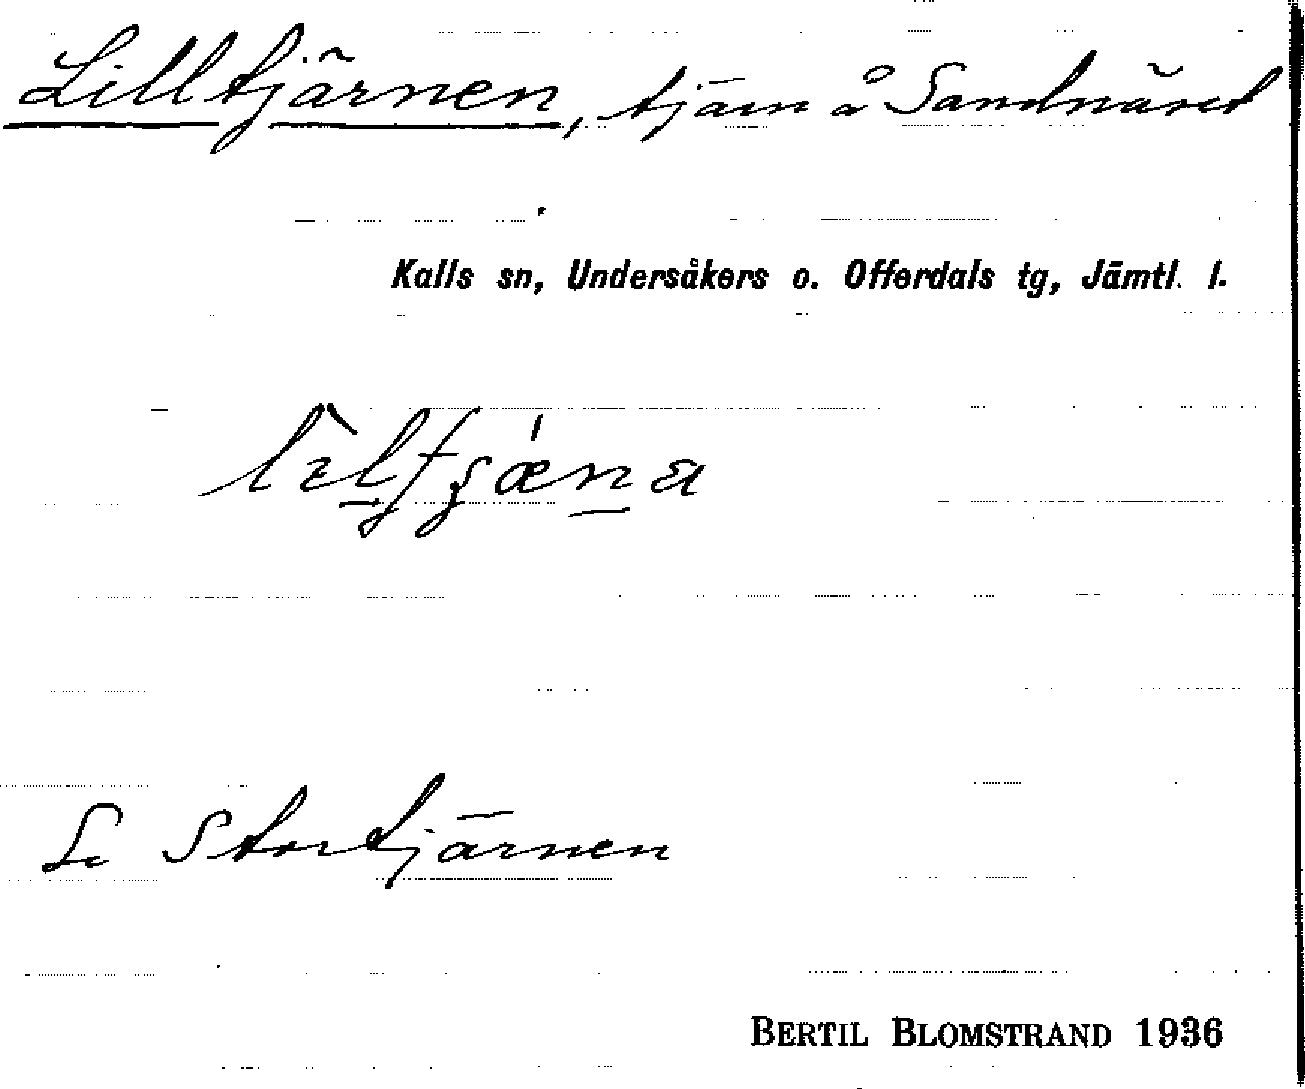 Lilltjärnen, tjärn å Sandnäset
Kalls sn, Undersåkers o. Offerdals tg, Jämtl. l.
Se Stortjärnen
BERTIL BLOMSTRAND 1936